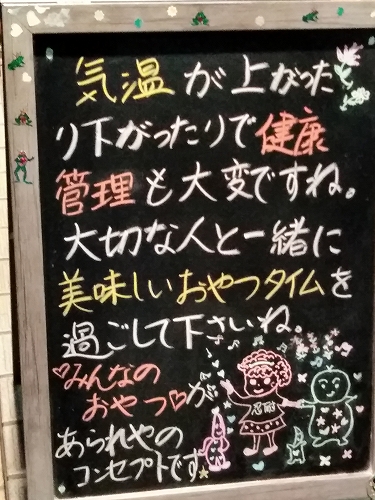 気温が上がった
り下がったりで健康
管理も大変ですね。
大切な人と一緒に
美味しいおやつタイムを
過ごして下さいね。
♡みんなの
おやつ♡が
あられやの
コンセプトです
忍耐